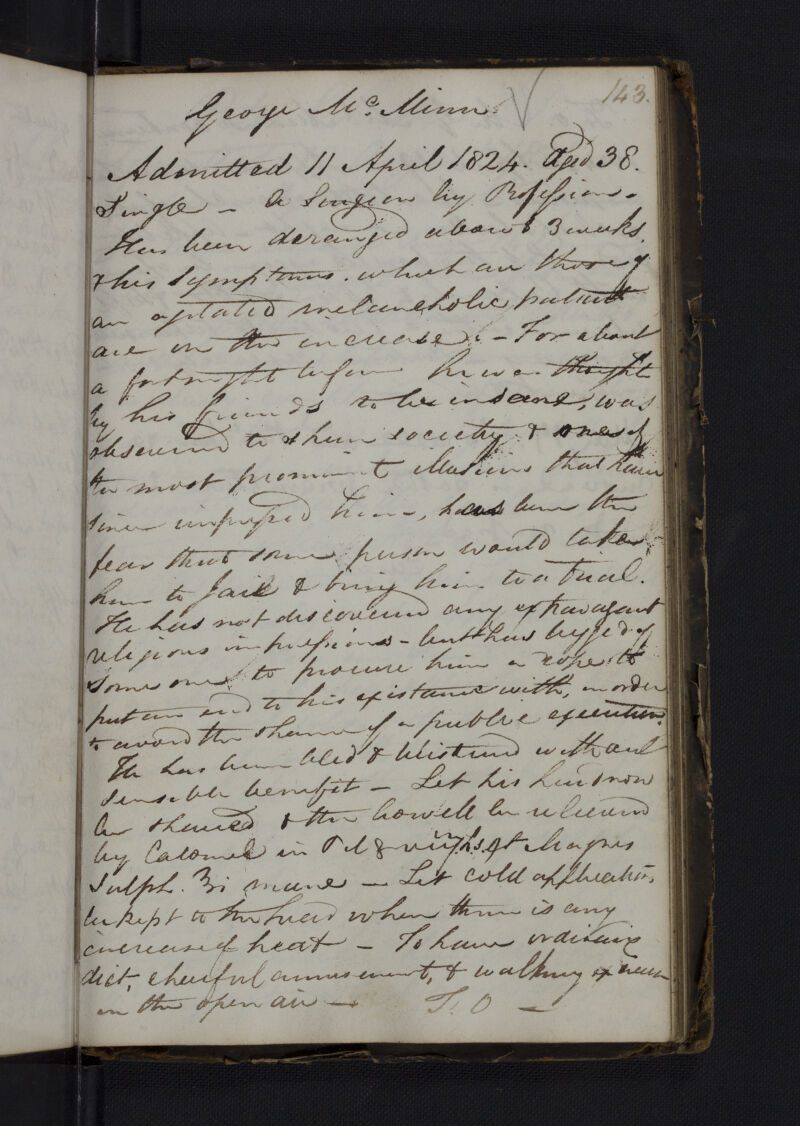 143.
George Mc. Minn
Admitted 11 April 1824. Aged 38.
Single - A Surgeon by Profession.
Has been deranged about 3 weeks
& his symptoms. which are those of
an agitated melancholic patient
are on the increase. - For about
a fortnight before he was thought
by his friends to be insane, was
observed to shun society & one of
the most prominent illusions that have
since impressed him, has been the
fear that some person would take
him to Jail & bring him to a trial.
He has not discovered any extravagant
religious impressions - but has begged of
some one to procure him a rope to
put an end to his existance with, in order
to avoid the shame of a public execution.
He has been bled & blistered without
sensible benefit - Let his head now
be shaved & the bowells be relieved
by Calomel in Pil & Magnes
Sulph. ʒi mane - Let cold applications
be kept to the head when there is any
increase of heat - To have ordinary
diet, cheerful amusement, & walking exercise
in the open air - T. O -